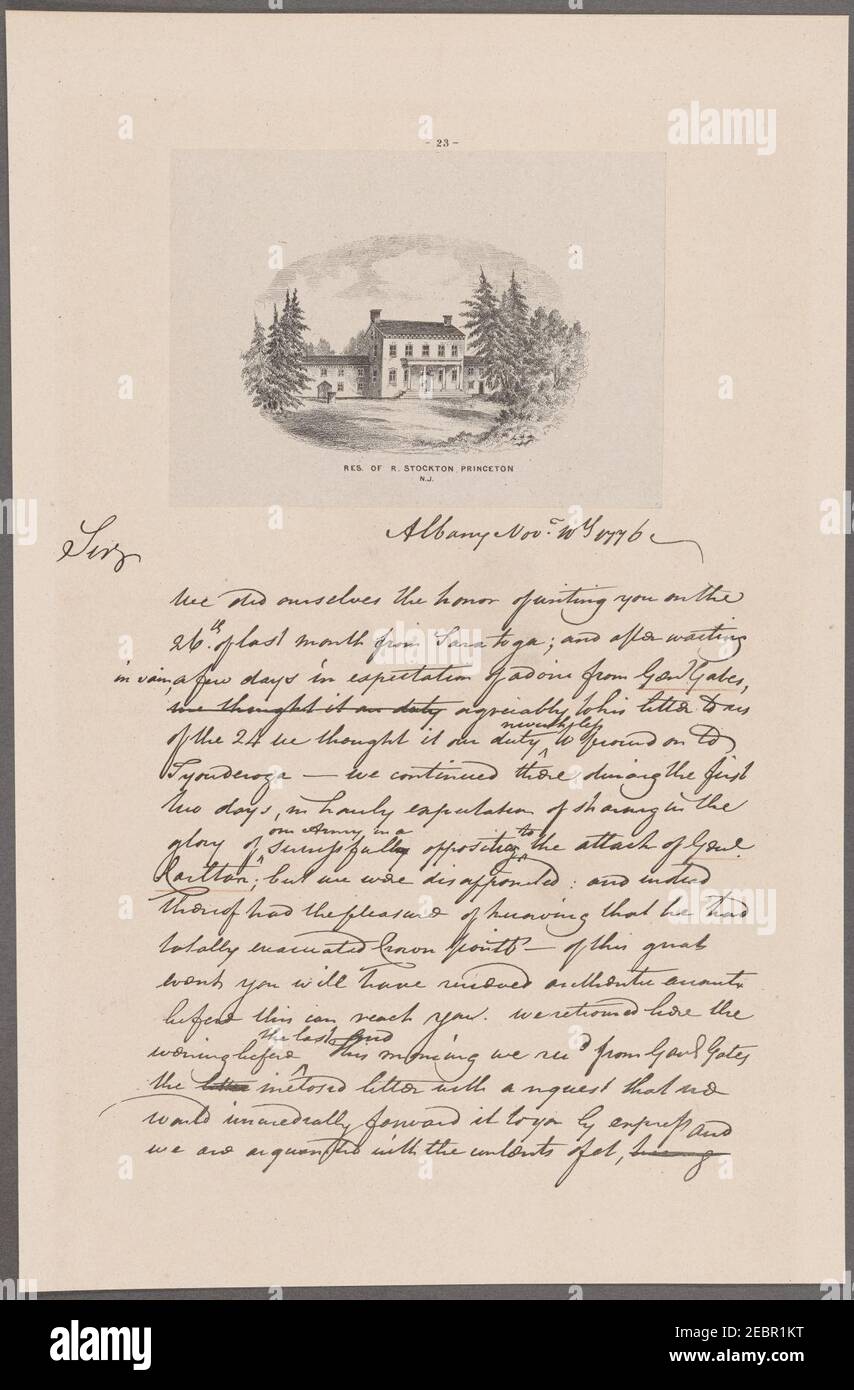 - 23 -
RES. OF R. STOCKTON, PRINCETON
N.J.
Albany Novr. 10th 1776
Sir,
We did ourselves the honor of writing you on the
26th. of last month from Saratoga; and after waiting
in vain, a few days in expectation of advice from Genl Gates,
we thought it our duty agreeably to his letter to us
of the 24 we thought it our duty nevertheless to proceed on to
Tyonderoga — we continued there, during the first
two days, in hourly expectation of sharing in the
glory of our Army in a successful opposition to the attack of Genl.
Carlton; but we were disappointed: and instead
thereof had the pleasure of knowing that he had
totally evacuated Crown point — of this great
event you will have received authentic accounts
before this can reach you. we returned here the
evening before the last and this morning we recd from Genl Gates
the letter inclosed letter with a request that we
would immediately forward it to you by express and
we are acquainted with the contents of it,
alamy
Image ID: 2EBR1KT
www.alamy.com